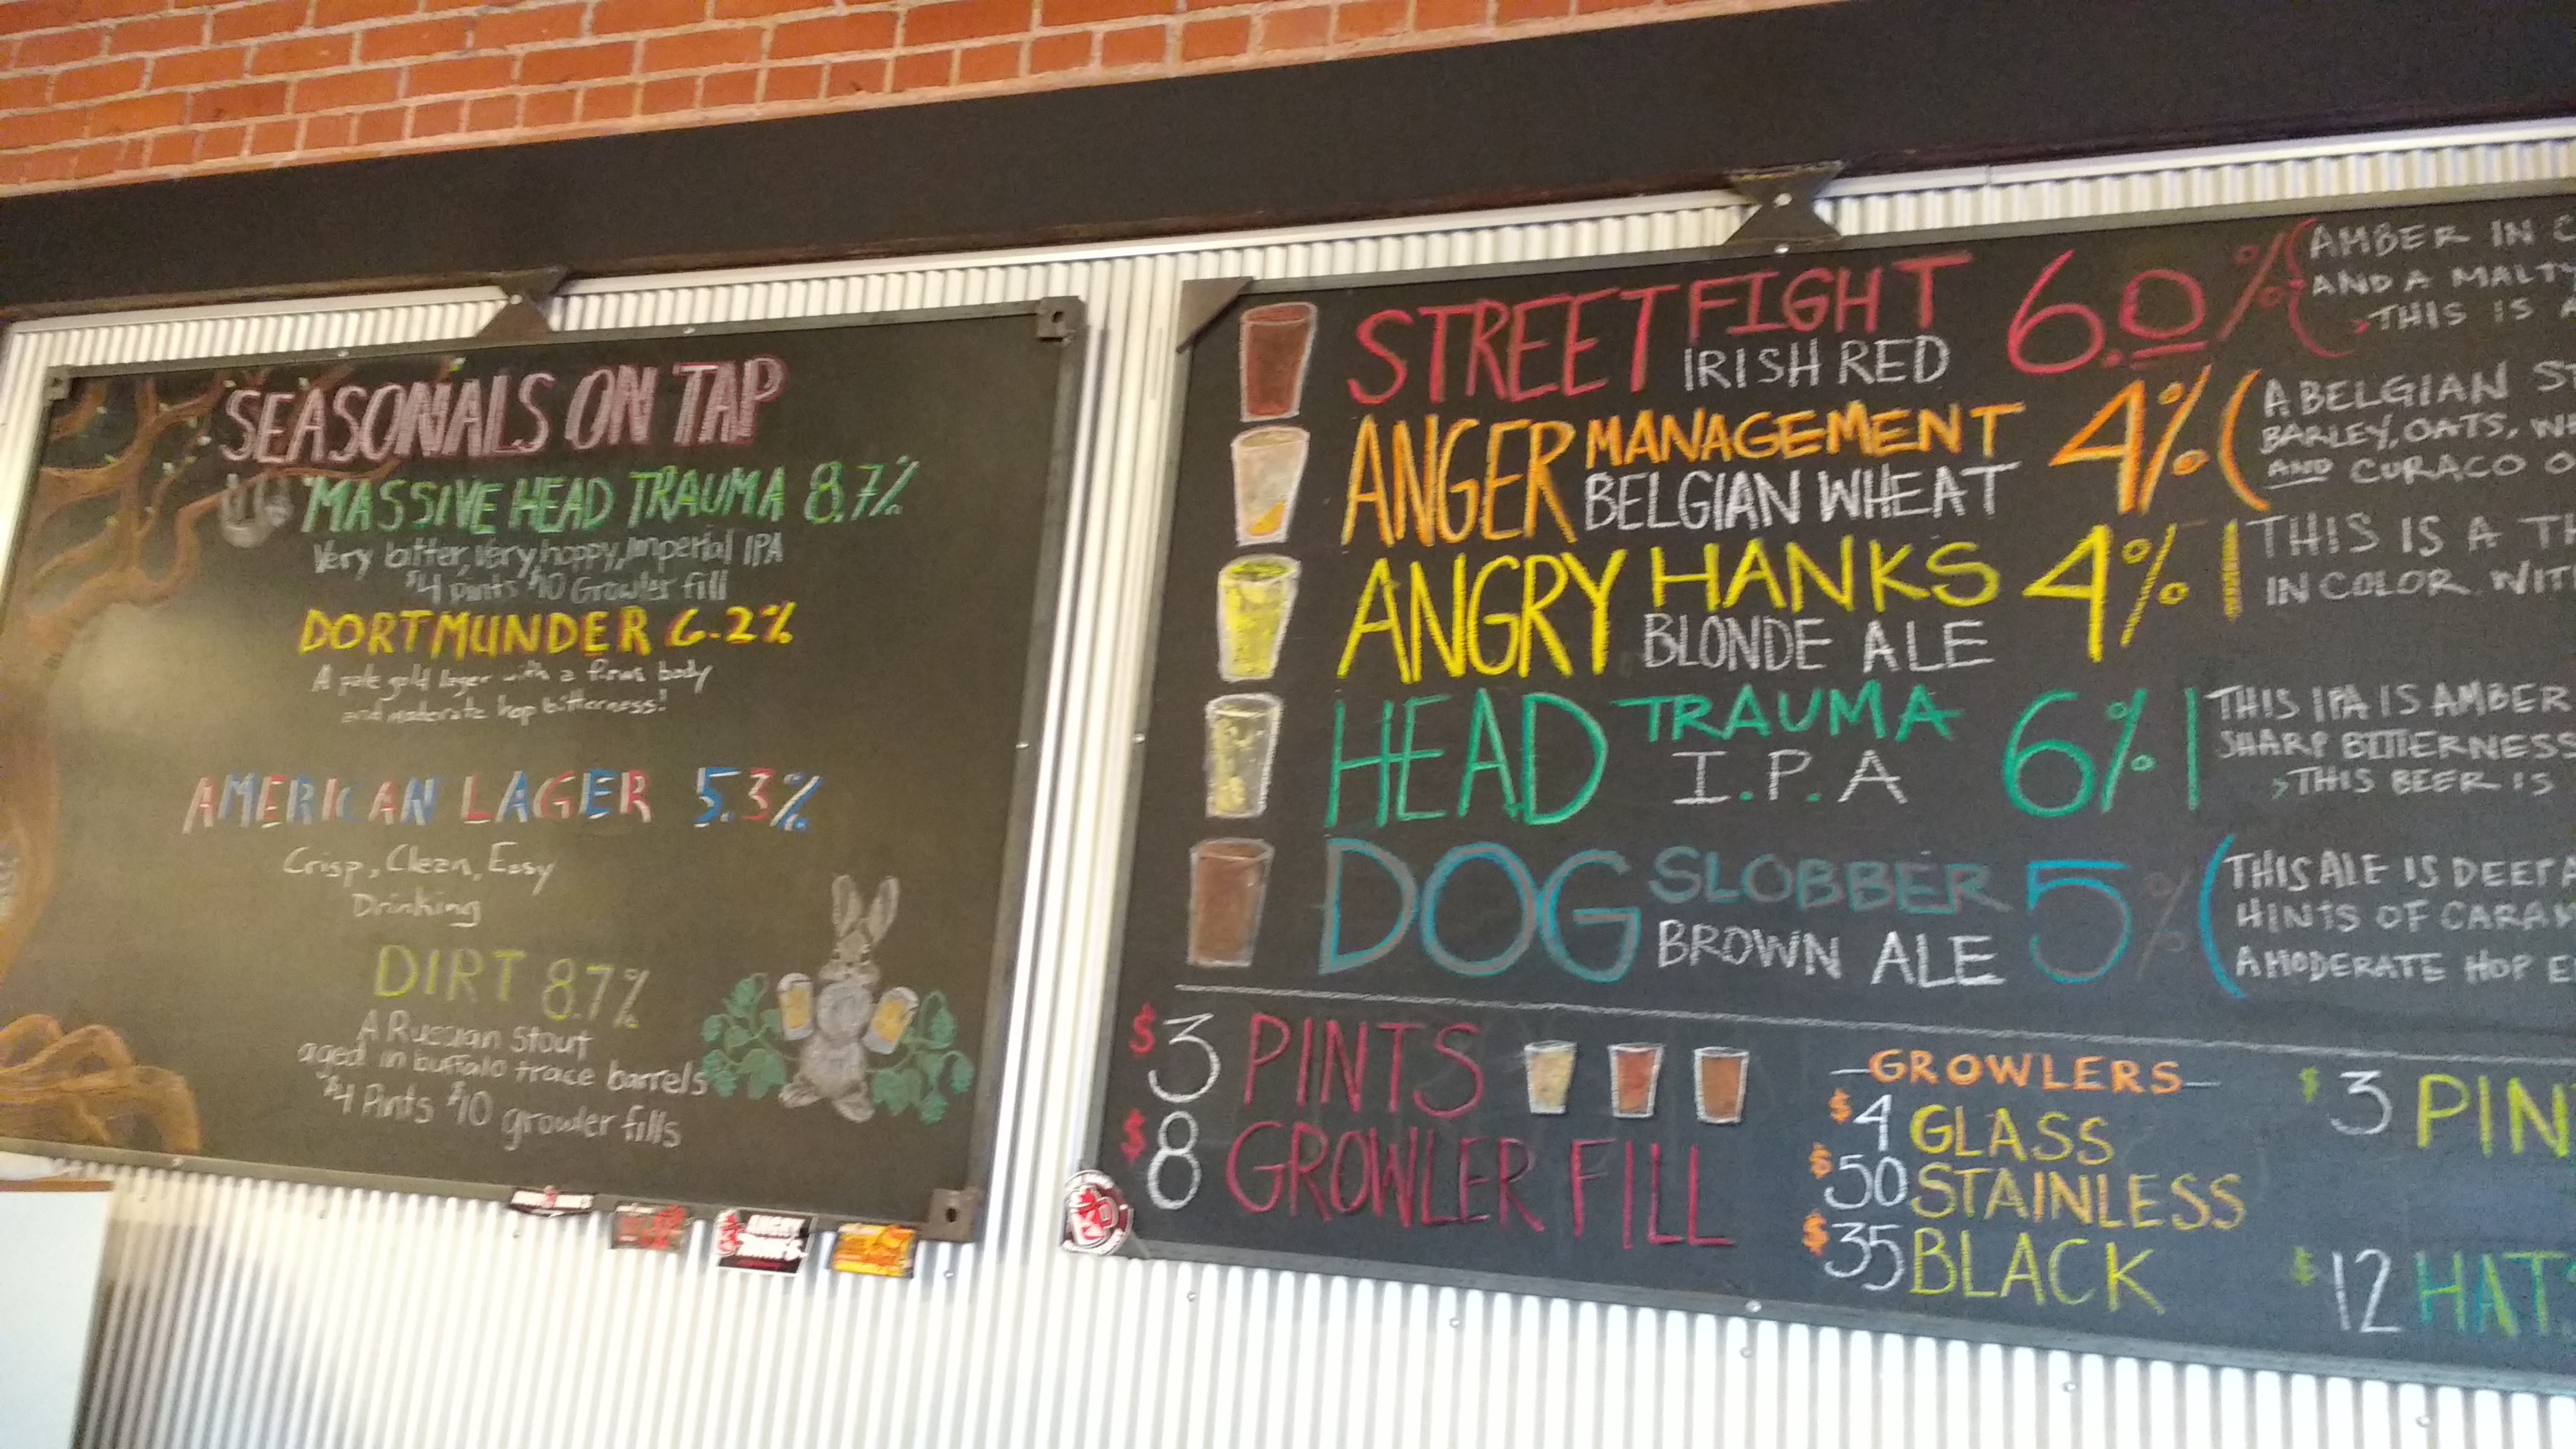 SEASONALS ON TAP
MASSIVE HEAD TRAUMA 8.7%
Very bitter, Very hoppy, Imperial IPA
$4 pints $10 Growler fill
DORTMUNDER 6.2%
A pale gold lager with a firm body
and moderate hop bitterness!
AMERICAN LAGER 5.3%
Crisp, Clean, Easy
Drinking
DIRT 8.7%
A Russian Stout
aged in buffalo trace barrels
$4 Pints $10 growler fills
ANGRY HANK'S
STREET FIGHT 6.0%
IRISH RED
AMBER IN
AND A MALTY
THIS IS A
ANGER MANAGEMENT 4%
BELGIAN WHEAT
A BELGIAN
BARLEY, OATS,
AND CURACO
ANGRY HANKS 4%
BLONDE ALE
THIS IS A
IN COLOR WITH
HEAD TRAUMA 6%
I.P.A
THIS IPA IS AMBER
SHARP BITTERNESS
THIS BEER IS
DOG SLOBBER 5%
BROWN ALE
THIS ALE IS DEEP
HINTS OF
A MODERATE HOP
$3 PINTS
$8 GROWLER FILL
GROWLERS
$4 GLASS
$50 STAINLESS
$35 BLACK
$3 PIN
$12 HAT